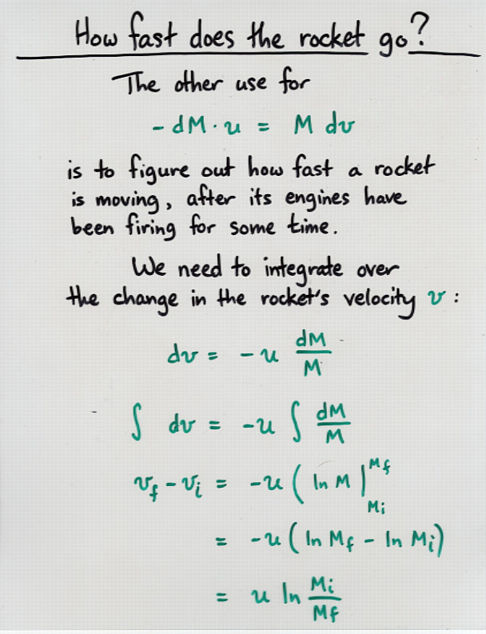 How fast does the rocket go?
The other use for
- dM · u = M dv
is to figure out how fast a rocket
is moving, after its engines have
been firing for some time.
We need to integrate over
the change in the rocket's velocity v :
dv = - u dM/M
∫ dv = -u ∫ dM/M
v_f - v_i = -u ( ln M |_{M_i}^{M_f}
= -u ( ln M_f - ln M_i)
= u ln M_i/M_f